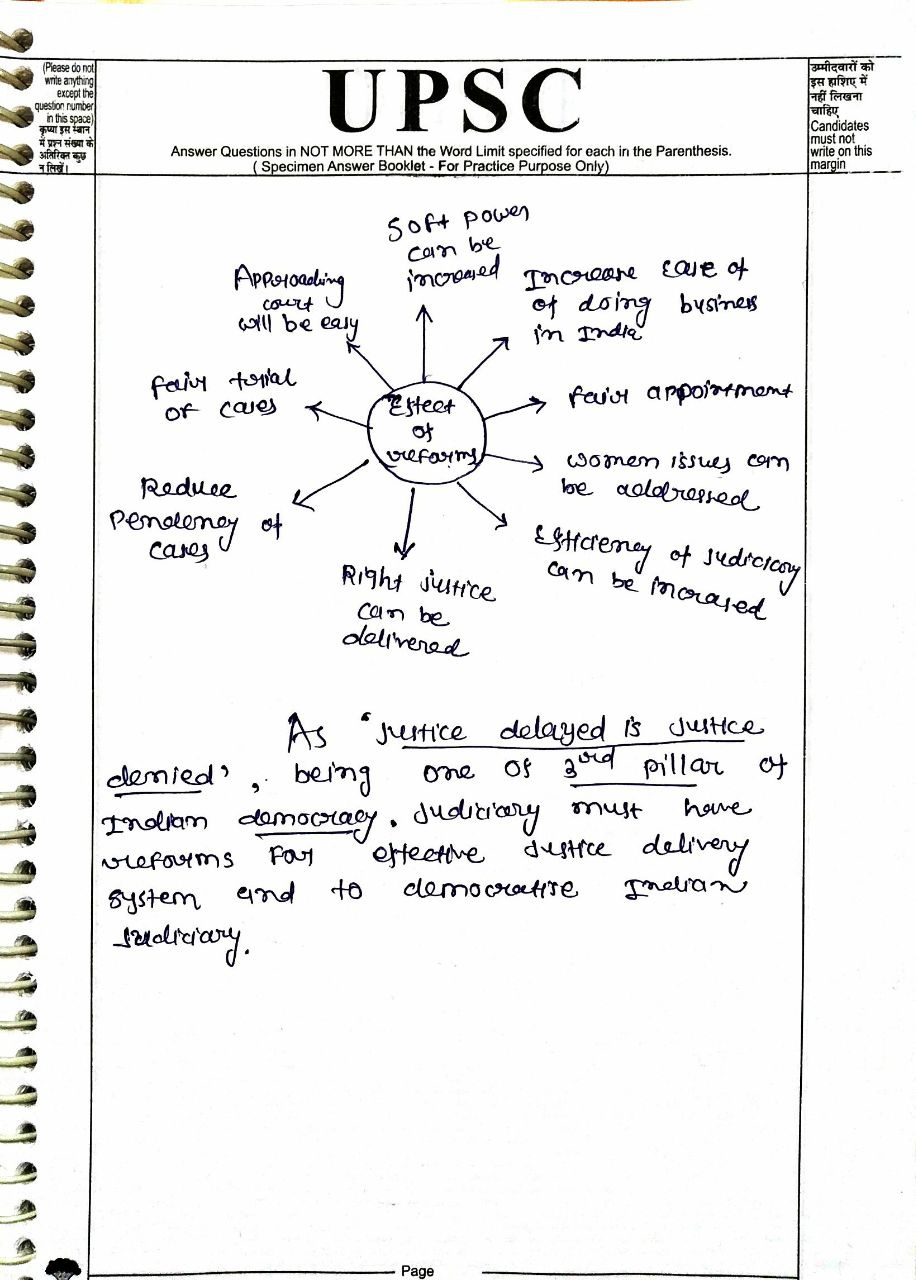 (Please do not
write anything
except the
question number
in this space)
कृप्या इस स्थान
में प्रश्न संख्या के
अतिरिक्त कुछ
न लिखें।
UPSC
Answer Questions in NOT MORE THAN the Word Limit specified for each in the Parenthesis.
( Specimen Answer Booklet - For Practice Purpose Only)
उम्मीदवारों को
इस हाशिए में
नहीं लिखना
चाहिए
Candidates
must not
write on this
margin
Soft power
can be
increased
Approaching
court
will be easy
Increase ease of
of doing business
in India
fair trial
of cases
Effect
of
reforms
fair appointment
women issues can
be addressed
Reduce
Pendency of
cases
Efficiency of Judiciary
can be incrased
Right justice
can be
delivered
As 'Justice delayed is Justice
denied', being one of 3rd pillar of
Indian democracy. Judiciary must have
reforms for effective Justice delivery
system and to democratise Indian
Judiciary.
Page